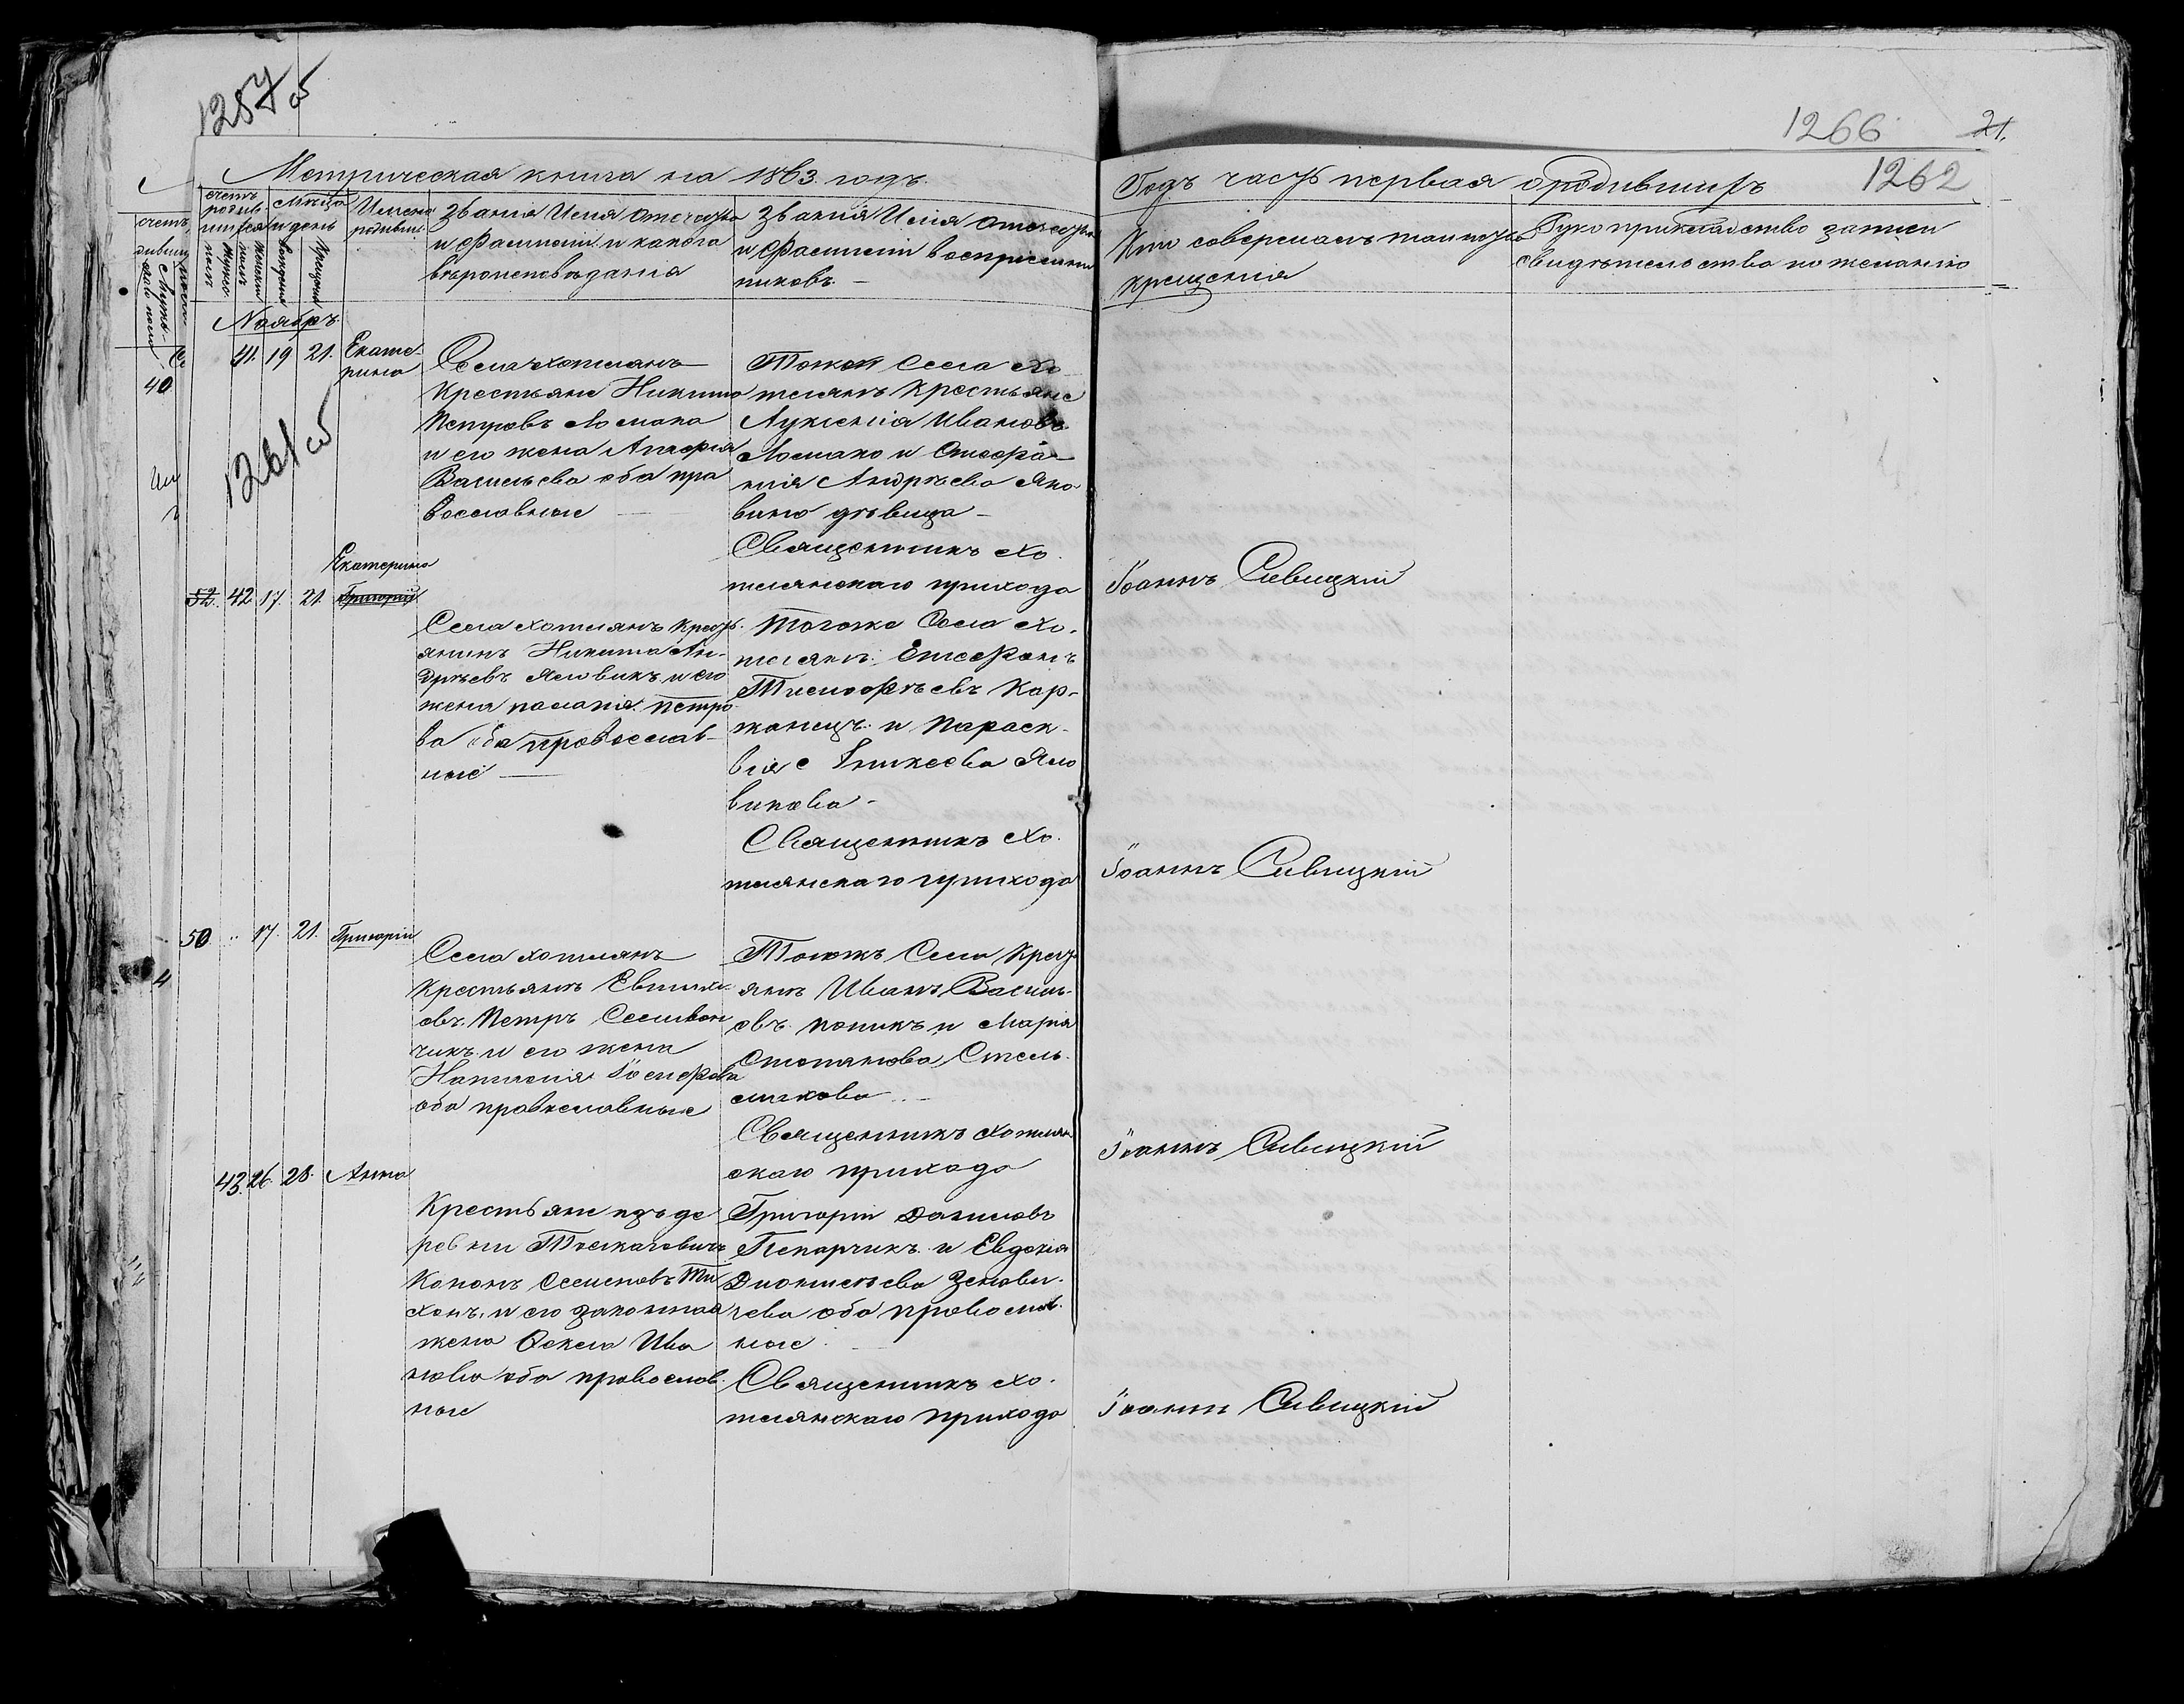 1257 об
1266 21.
1262
Метрическая книга на 1863. годъ.
Годъ часть первая о родившихъ
счетъ родив-шихся
Мѣсяцъ и день
Имена родивши.
Званія Имя Отчество
и Фамилія и какого
вѣроисповѣданія
Званія Имя Отчество
и Фамилія воспріем
никовъ. —
Кто совершалъ таинство
крещенія
Рукоприкладство записи
свидѣтельства по желанію
Ноябрь.
40
1261 об
41. 19 21. Екате-
рина
Села Хотлянъ
Крестьяне Никита
Петровъ Ломака
и его жена
Васильева оба пра
вославные —
Тогожъ Села Хо
тлянъ Крестьяне
Лукіенія Иванова
Ломако и Стефа-
нія Андрѣева Яло
вика дѣвица —
Священникъ Хо.
тлянскаго прихода
Іоаннъ Савицкій
52. 42 17. 21. Екатерина
Григорій
Села Хотлянъ Крест.
янинъ Никита Ан-
дрѣевъ Яловикъ и его
жена Палагія Петро
ва оба православ-
ные —
Тогоже Села Хо.
тлянъ Стефанъ
Тимофѣевъ Кор-
жанецъ и Параск-
віяе Аникеева Яло
викова —
Священникъ Хо.
тлянскаго прихода
Іоаннъ Савицкій
50. 17. 21. Григорій
Села Хотлянъ
Крестьянъ Евтихі
овъ Петръ Селивон
чикъ и его жена
Наталія Іосифова
оба православные
Тогожъ Села Крест
янъ Иванъ Василь-
овъ Попикъ и Марія
Степанова Стель.
машкова —
Священникъ Хотлян
скаго прихода
Іоаннъ Савицкій
43. 26. 28. Анна
Крестьяне изъ де
ревни
Кононъ Семеновъ Ти
хонъ. и его законная
жена Фекла Ива
нова оба православ.
ные
Григорій Даниловъ
Пекарчикъ и Евдокія
Діонисьева Зенови.
чева оба православ.
ные
Священникъ Хо.
тлянскаго прихода
Іоаннъ Савицкій